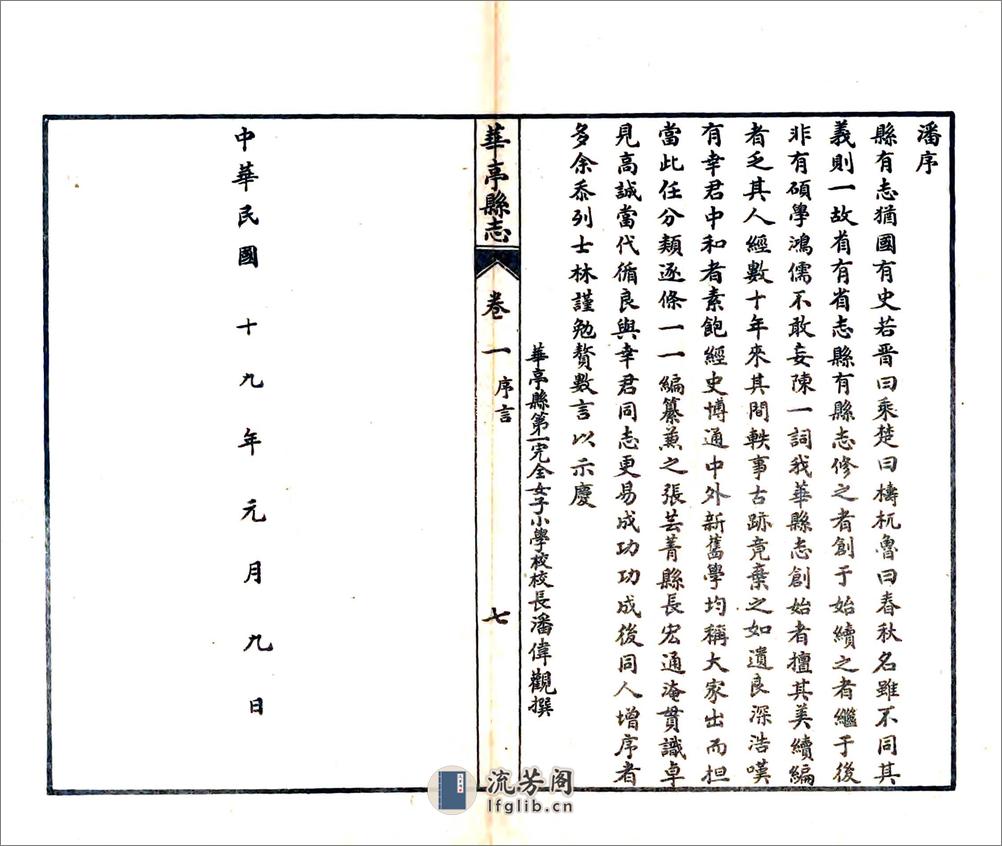 潘序
縣有志猶國有史若晋曰乘楚曰檮杌魯曰春秋名雖不同其
義則一故省有省志縣有縣志修之者創于始續之者繼于後
非有碩學鴻儒不敢妄陳一詞我華縣志創始者擅其美續編
者乏其人經數十年來其間軼事古跡竟棄之如遺良深浩嘆
有幸君中和者素飽經史博通中外新舊學均稱大家出而担
當此任分類逐條一一編纂兼之張芸菁縣長宏通淹貫識卓
見高誠當代循良與幸君同志更易成功功成後同人增序者
多余忝列士林謹勉贅數言以示慶
華亭縣第一完全女子小學校校長潘偉觀撰
華亭縣志
卷一
序言
七
中華民國十九年元月九日
流芳阁
lfglib.cn